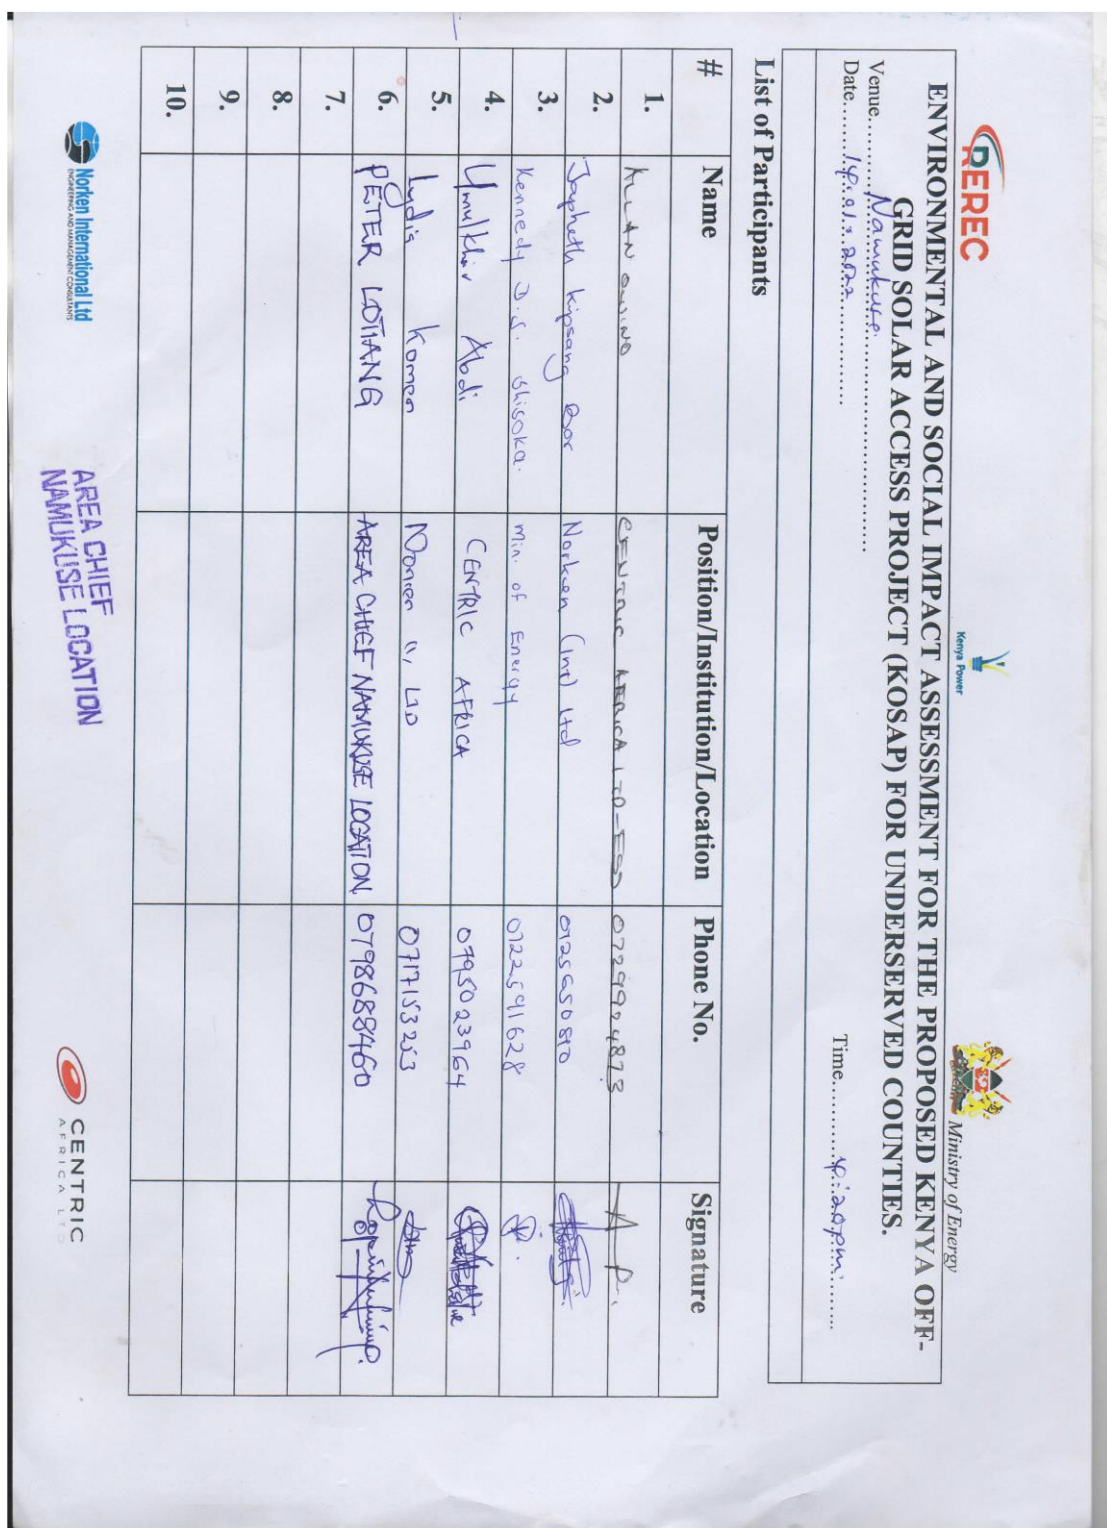 REREC
Kenya Power
Ministry of Energy
ENVIRONMENTAL AND SOCIAL IMPACT ASSESSMENT FOR THE PROPOSED KENYA OFF-
GRID SOLAR ACCESS PROJECT (KOSAP) FOR UNDERSERVED COUNTIES.
Venue.........Namukuse.........
Date.........2022......... Time.........4:20pm.........
List of Participants
# Name Position/Institution/Location Phone No. Signature
1. ALLAN CENTRIC AFRICA LTD-
2. Japheth Kipsang Norken (Int) Ltd
3. Kennedy D.S. Shisoka. Min. of Energy 0722591628
4. Umulkheir Abdi CENTRIC AFRICA 0795023964
5. Lydia Komen LTD 0717153253
6. PETER LOTIANG AREA CHIEF NAMUKUSE LOCATION 0798688460
7.
8.
9.
10.
Norken International Ltd
ENGINEERING AND MANAGEMENT CONSULTANTS
AREA CHIEF
NAMUKUSE LOCATION
CENTRIC
AFRICA LTD